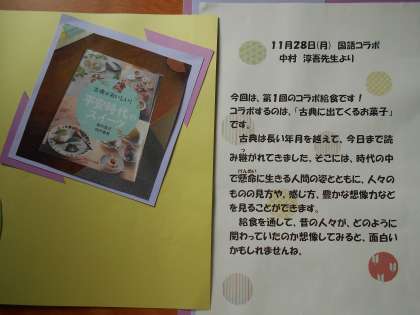 古典がおいしい!
平安時代の
スイーツ
11月28日(月) 国語コラボ
中村 淳吾先生より
今回は、第1回のコラボ給食です!
コラボするのは、「古典に出てくるお菓子」
です。
古典は長い年月を越えて、今日まで読
み継がれてきました。そこには、時代の中
で懸命に生きる人間の姿とともに、人々の
ものの見方や、感じ方、豊かな想像力など
を見ることができます。
給食を通して、昔の人々が、どのように
関わっていたのか想像してみると、面白い
かもしれませんね。